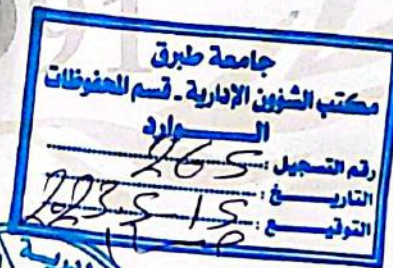 جامعة طبرق
مكتب الشؤون الإدارية - قسم المحفوظات
الـــــوارد
رقم التسجيل : 265
التاريـــخ : 2023-5-15
التوقيـــع :